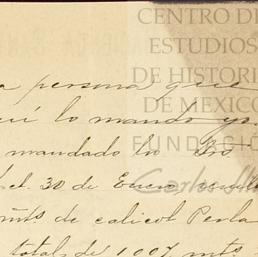 CENTRO DE
ESTUDIOS
DE HISTORI
DE MEXICO
FUNDACIÓ
a persona que
lo mando yo
mandado lo
el 30 de Enero
mts. de calicot Perla
total de 1007 mts.